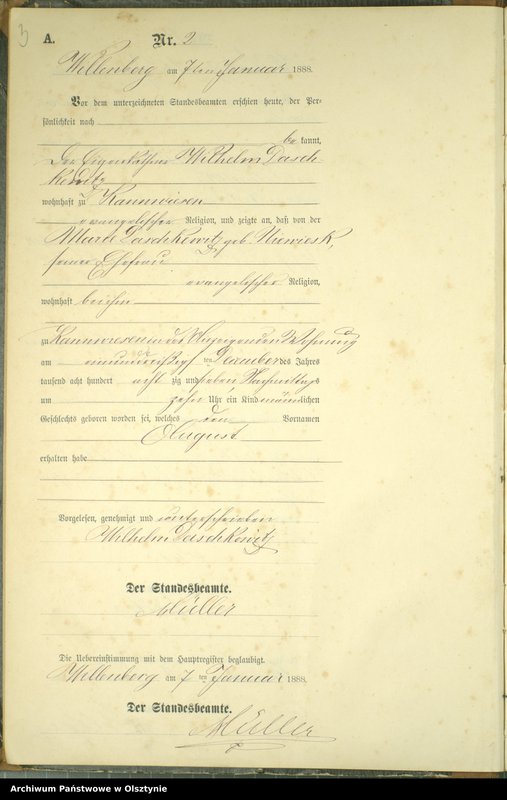 3
A.
Nr. 2
Willenberg am 7ten Januar 1888.
Vor dem unterzeichneten Standesbeamten erschien heute, der Per-
sönlichkeit nach
be kannt,
Der Eigenkäthner Wilhelm Dasch-
kewitz
wohnhaft zu Kannwiesen
evangelischer Religion, und zeigte an, daß von der
Maria Daschkewitz geb. Niewiesk,
seiner Ehefrau
evangelischer Religion,
wohnhaft bei ihm
zu Kannwiesen in des Anzeigenden Wohnung
am einunddreißigsten Dezember des Jahres
tausend acht hundert acht zig und sieben Nachmittags
um zehn Uhr ein Kind männlichen
Geschlechts geboren worden sei, welches den Vornamen
August
erhalten habe
Vorgelesen, genehmigt und unterschrieben
Wilhelm Daschkewitz
Der Standesbeamte.
Müller
Die Uebereinstimmung mit dem Hauptregister beglaubigt.
Willenberg am 7ten Januar 1888.
Der Standesbeamte.
Müller
Archiwum Państwowe w Olsztynie